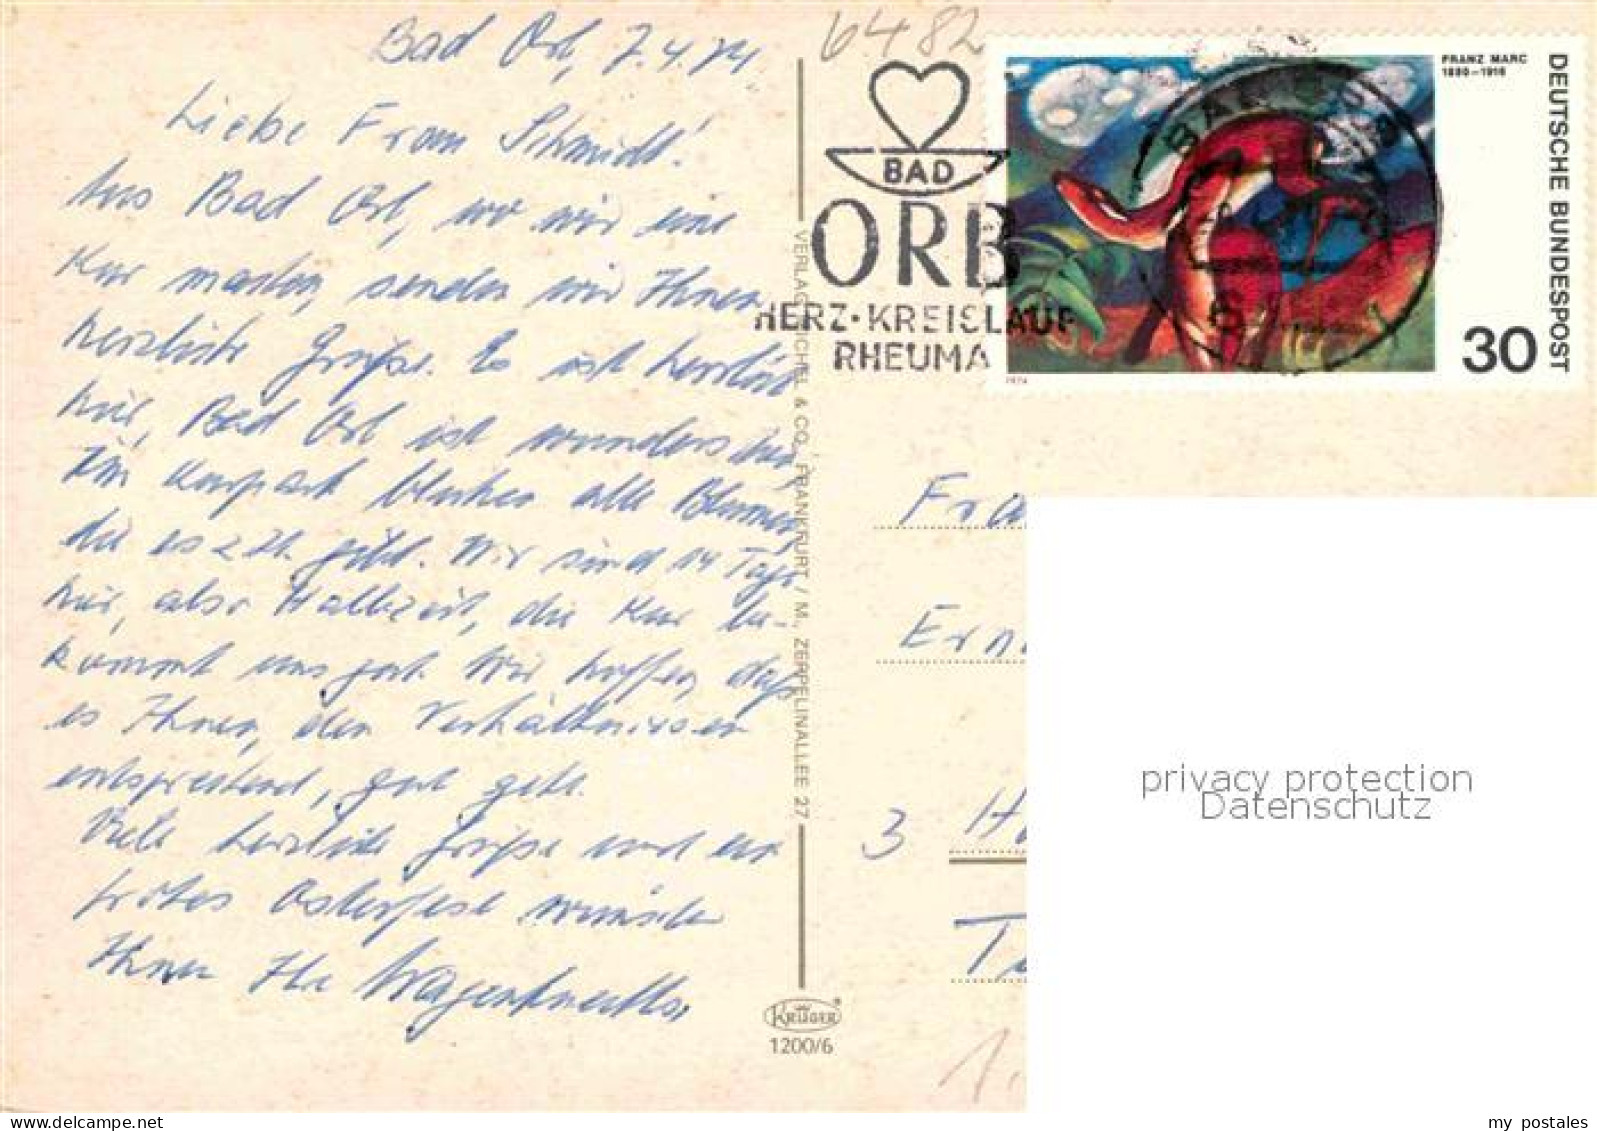 Bad Orb, 7.4.74
Liebe Frau Schmidt!
Aus Bad Orb, wo wir eine
Kur machen, senden wir Ihnen
herzliche Grüße. Es ist herrlich
hier, Bad Orb ist wunderschön,
Im Kurpark blühen alle Blumen,
die es z.Zt. gibt. Wir sind 14 Tage
hier, also Halbzeit, die Kur be-
kommt uns gut. Wir hoffen, daß
es Ihnen, den Verhältnissen
entsprechend, gut geht.
Viele herzliche Grüße und ein
frohes Osterfest wünschen
Ihnen Ihre Wagenknechts.
6482
BAD
ORB
HERZ·KREISLAUF
RHEUMA
FRANZ MARC
1880–1916
DEUTSCHE BUNDESPOST
30
1974
BAD ORB
VERLAG MICHEL & CO., FRANKFURT / M., ZEPPELINALLEE 27
Fra
Ern
3 H
T
KRÜGER
1200/6
1.
privacy protection
Datenschutz
my postales